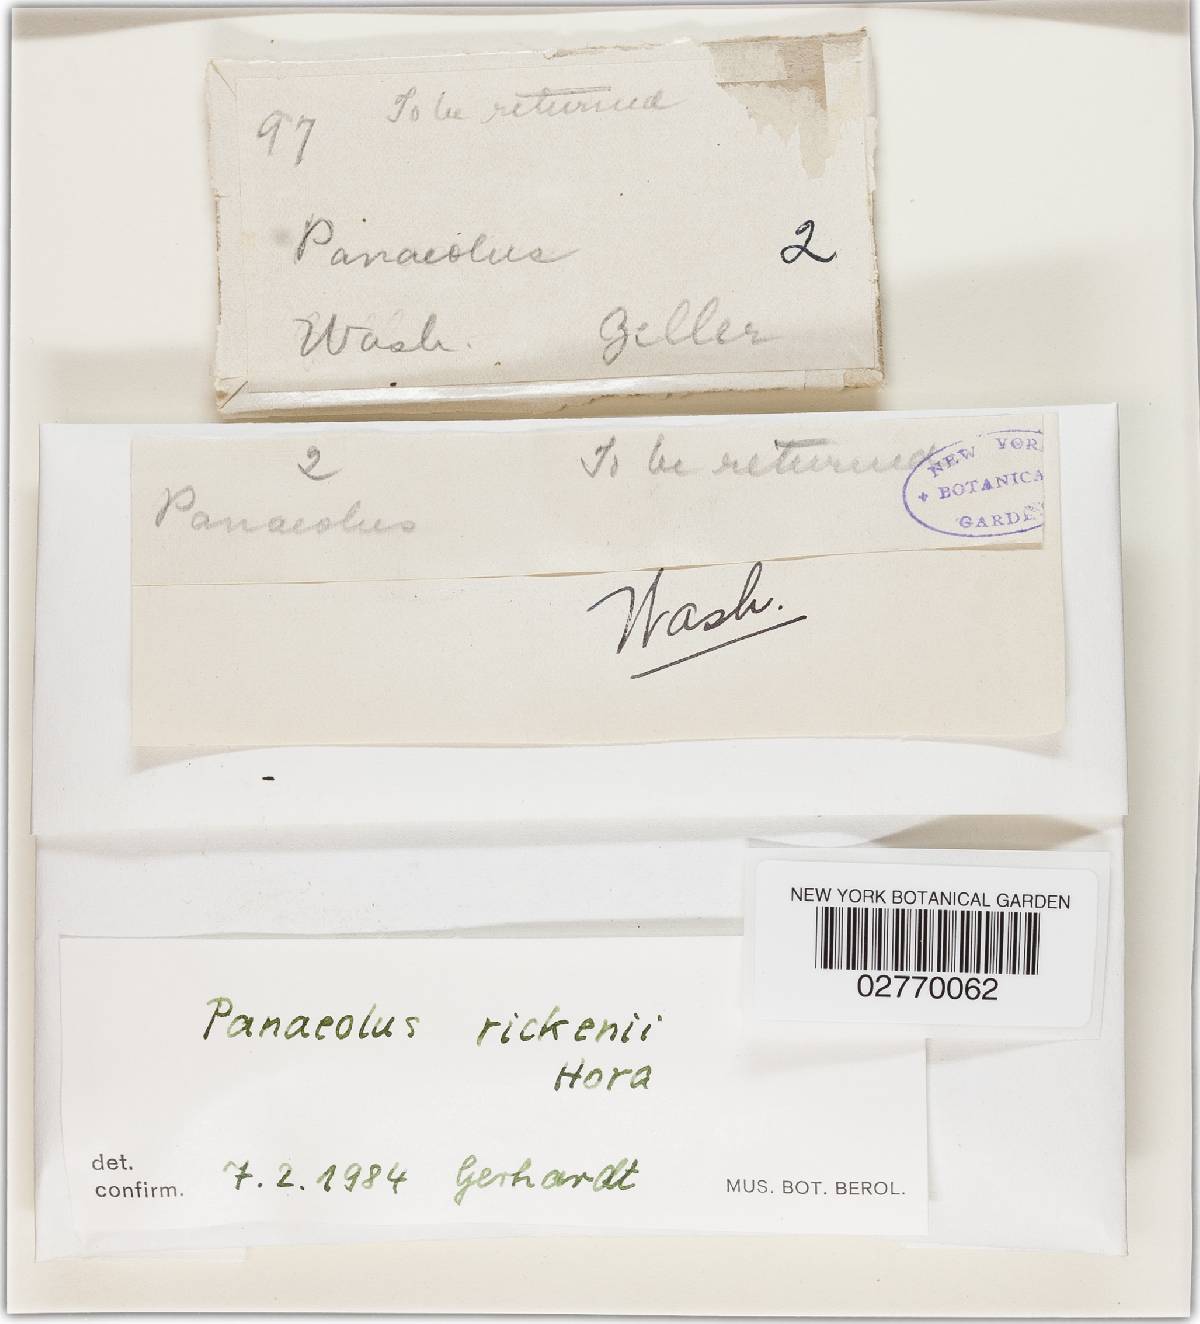 To be returned
97
Panaeolus 2
Wash. Geller
2 To be returned
Panaeolus
NEW YOR
+ BOTANICA
GARDE
Wash.
NEW YORK BOTANICAL GARDEN
02770062
Panaeolus rickenii
Hora
det.
confirm. 7.2.1984 Gerhardt MUS. BOT. BEROL.